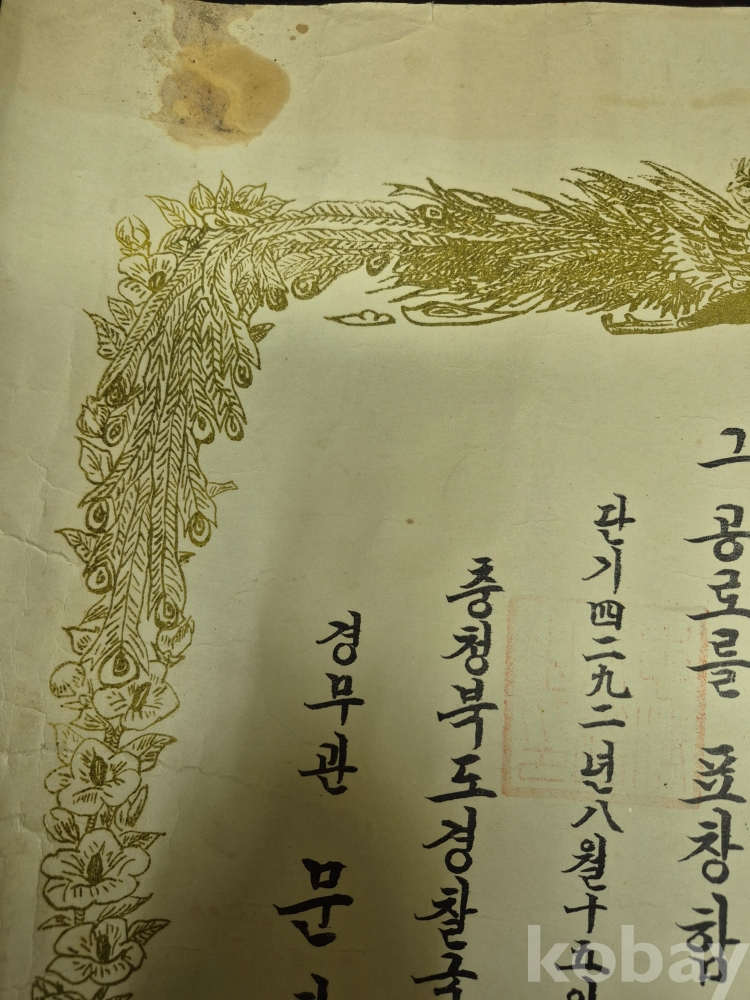 그 공로를 표창함
단기四二九二년八월十五일
충청북도경찰국
경무관 문
kobay